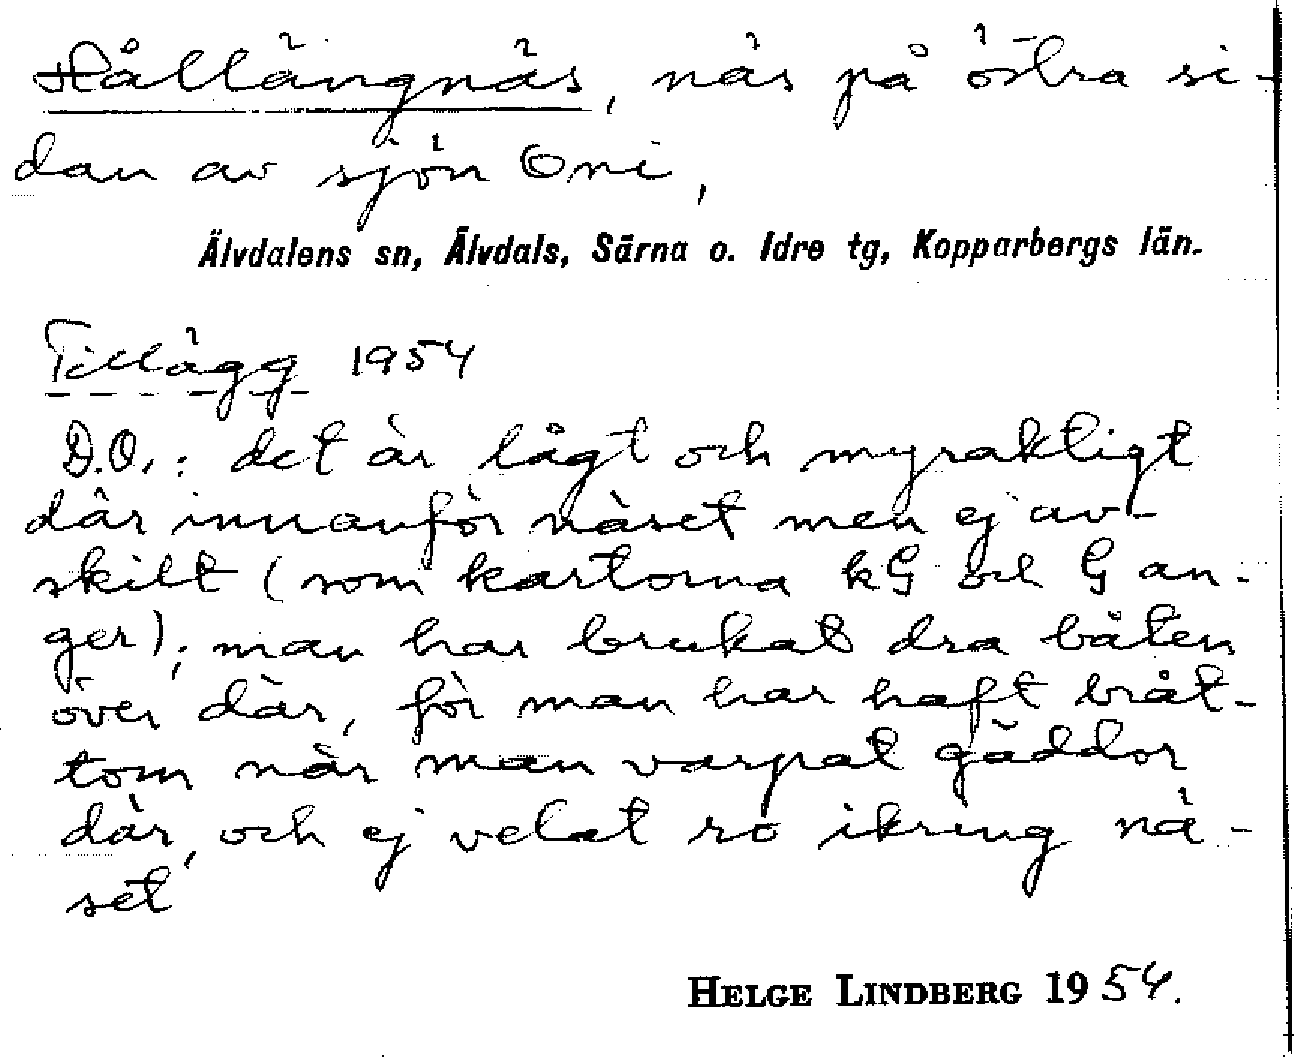 Hållängnäs, näs på östra si-
dan av sjön Oni,
Älvdalens sn, Älvdals, Särna o. Idre tg, Kopparbergs län.
Tillägg 1954
D.O.: det är lågt och myraktigt
där innanför näset men ej av-
skilt (som kartorna kG och G an-
ger); man har brukat dra båten
över där, för man har haft bråt-
tom när man varpat gäddor
där, och ej velat ro ikring nä-
set
HELGE LINDBERG 1954.